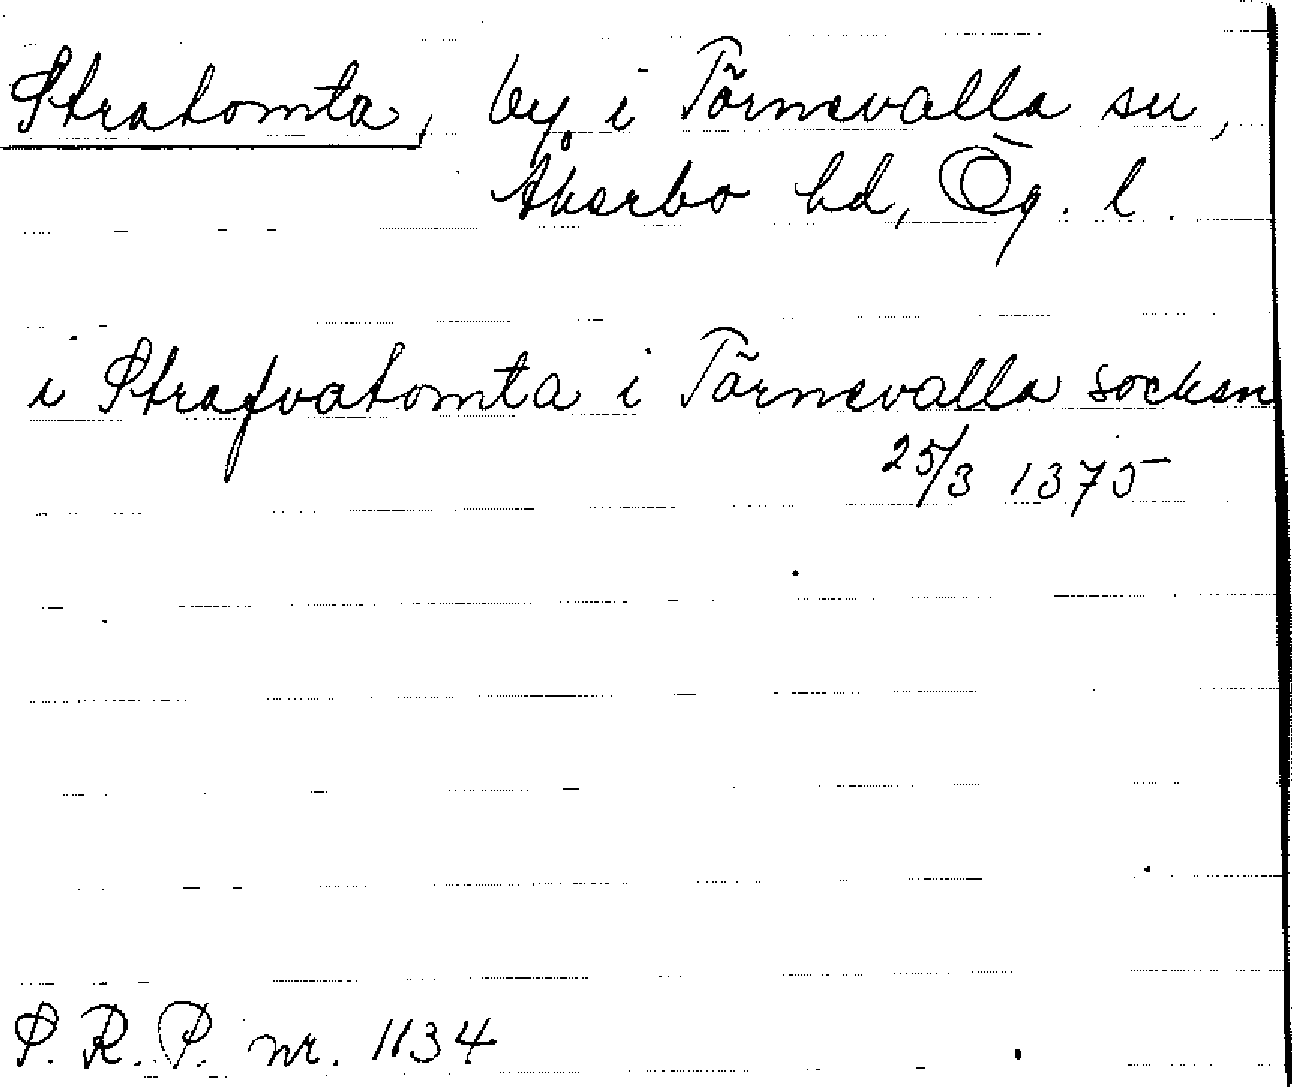 Stratomta, by i Törnevalla sn,
Åkerbo hd, Ög. l.
i Strafvatomta i Törnevalla socken
25/3 1375
S. R. P. nr. 1134